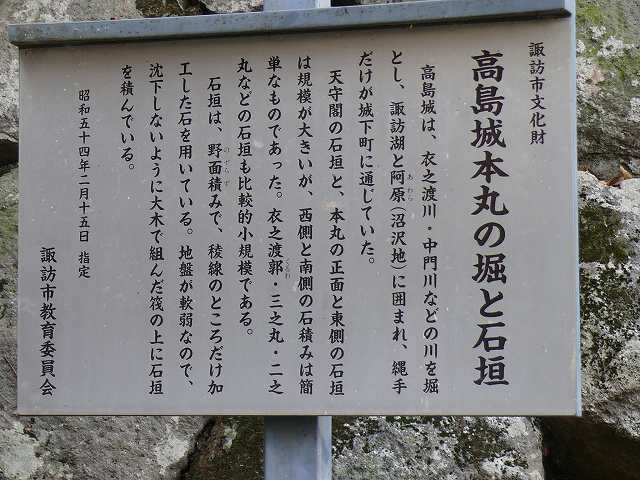 諏訪市文化財
高島城本丸の堀と石垣
高島城は、衣之渡川・中門川などの川を堀
とし、諏訪湖と阿原(沼沢地)に囲まれ、縄手
だけが城下町に通じていた。
天守閣の石垣と、本丸の正面と東側の石垣
は規模が大きいが、西側と南側の石積みは簡
単なものであった。衣之渡郭・三之丸・二之
丸などの石垣も比較的小規模である。
石垣は、野面積みで、稜線のところだけ加
工した石を用いている。地盤が軟弱なので、
沈下しないように大木で組んだ筏の上に石垣
を積んでいる。
昭和五十四年二月十五日 指定
諏訪市教育委員会